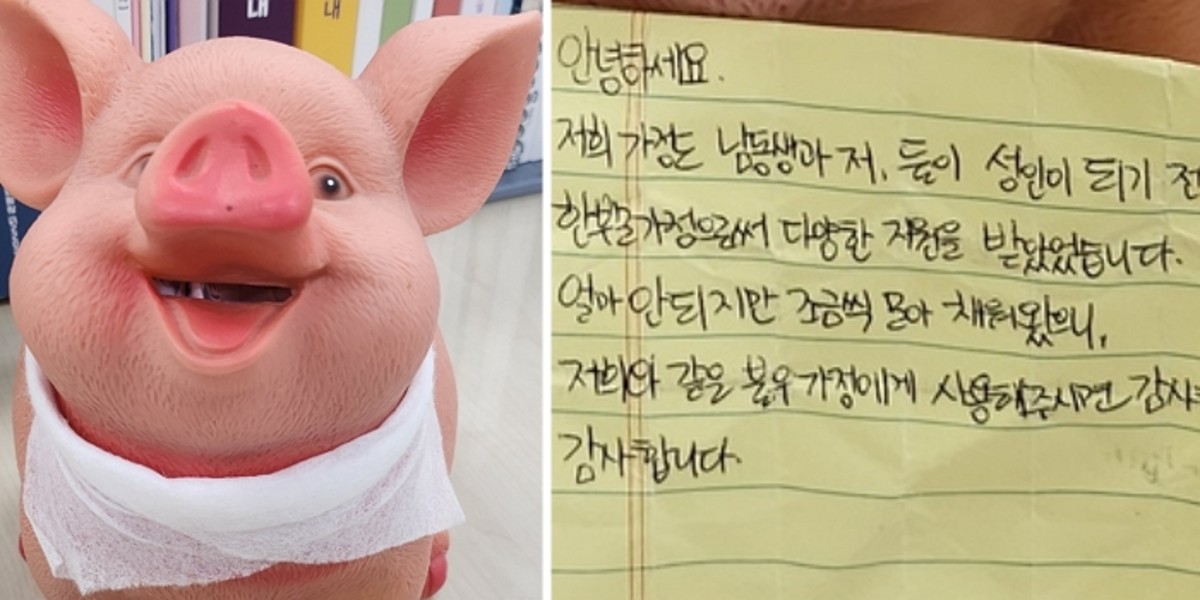 안녕하세요.
저희 가정은 남동생과 저, 둘이 성인이 되기 전
한부모가정으로써 다양한 지원을 받았었습니다.
얼마 안되지만 조금씩 모아 채워왔으니,
저희와 같은 불우가정에게 사용해주시면 감사
감사합니다.